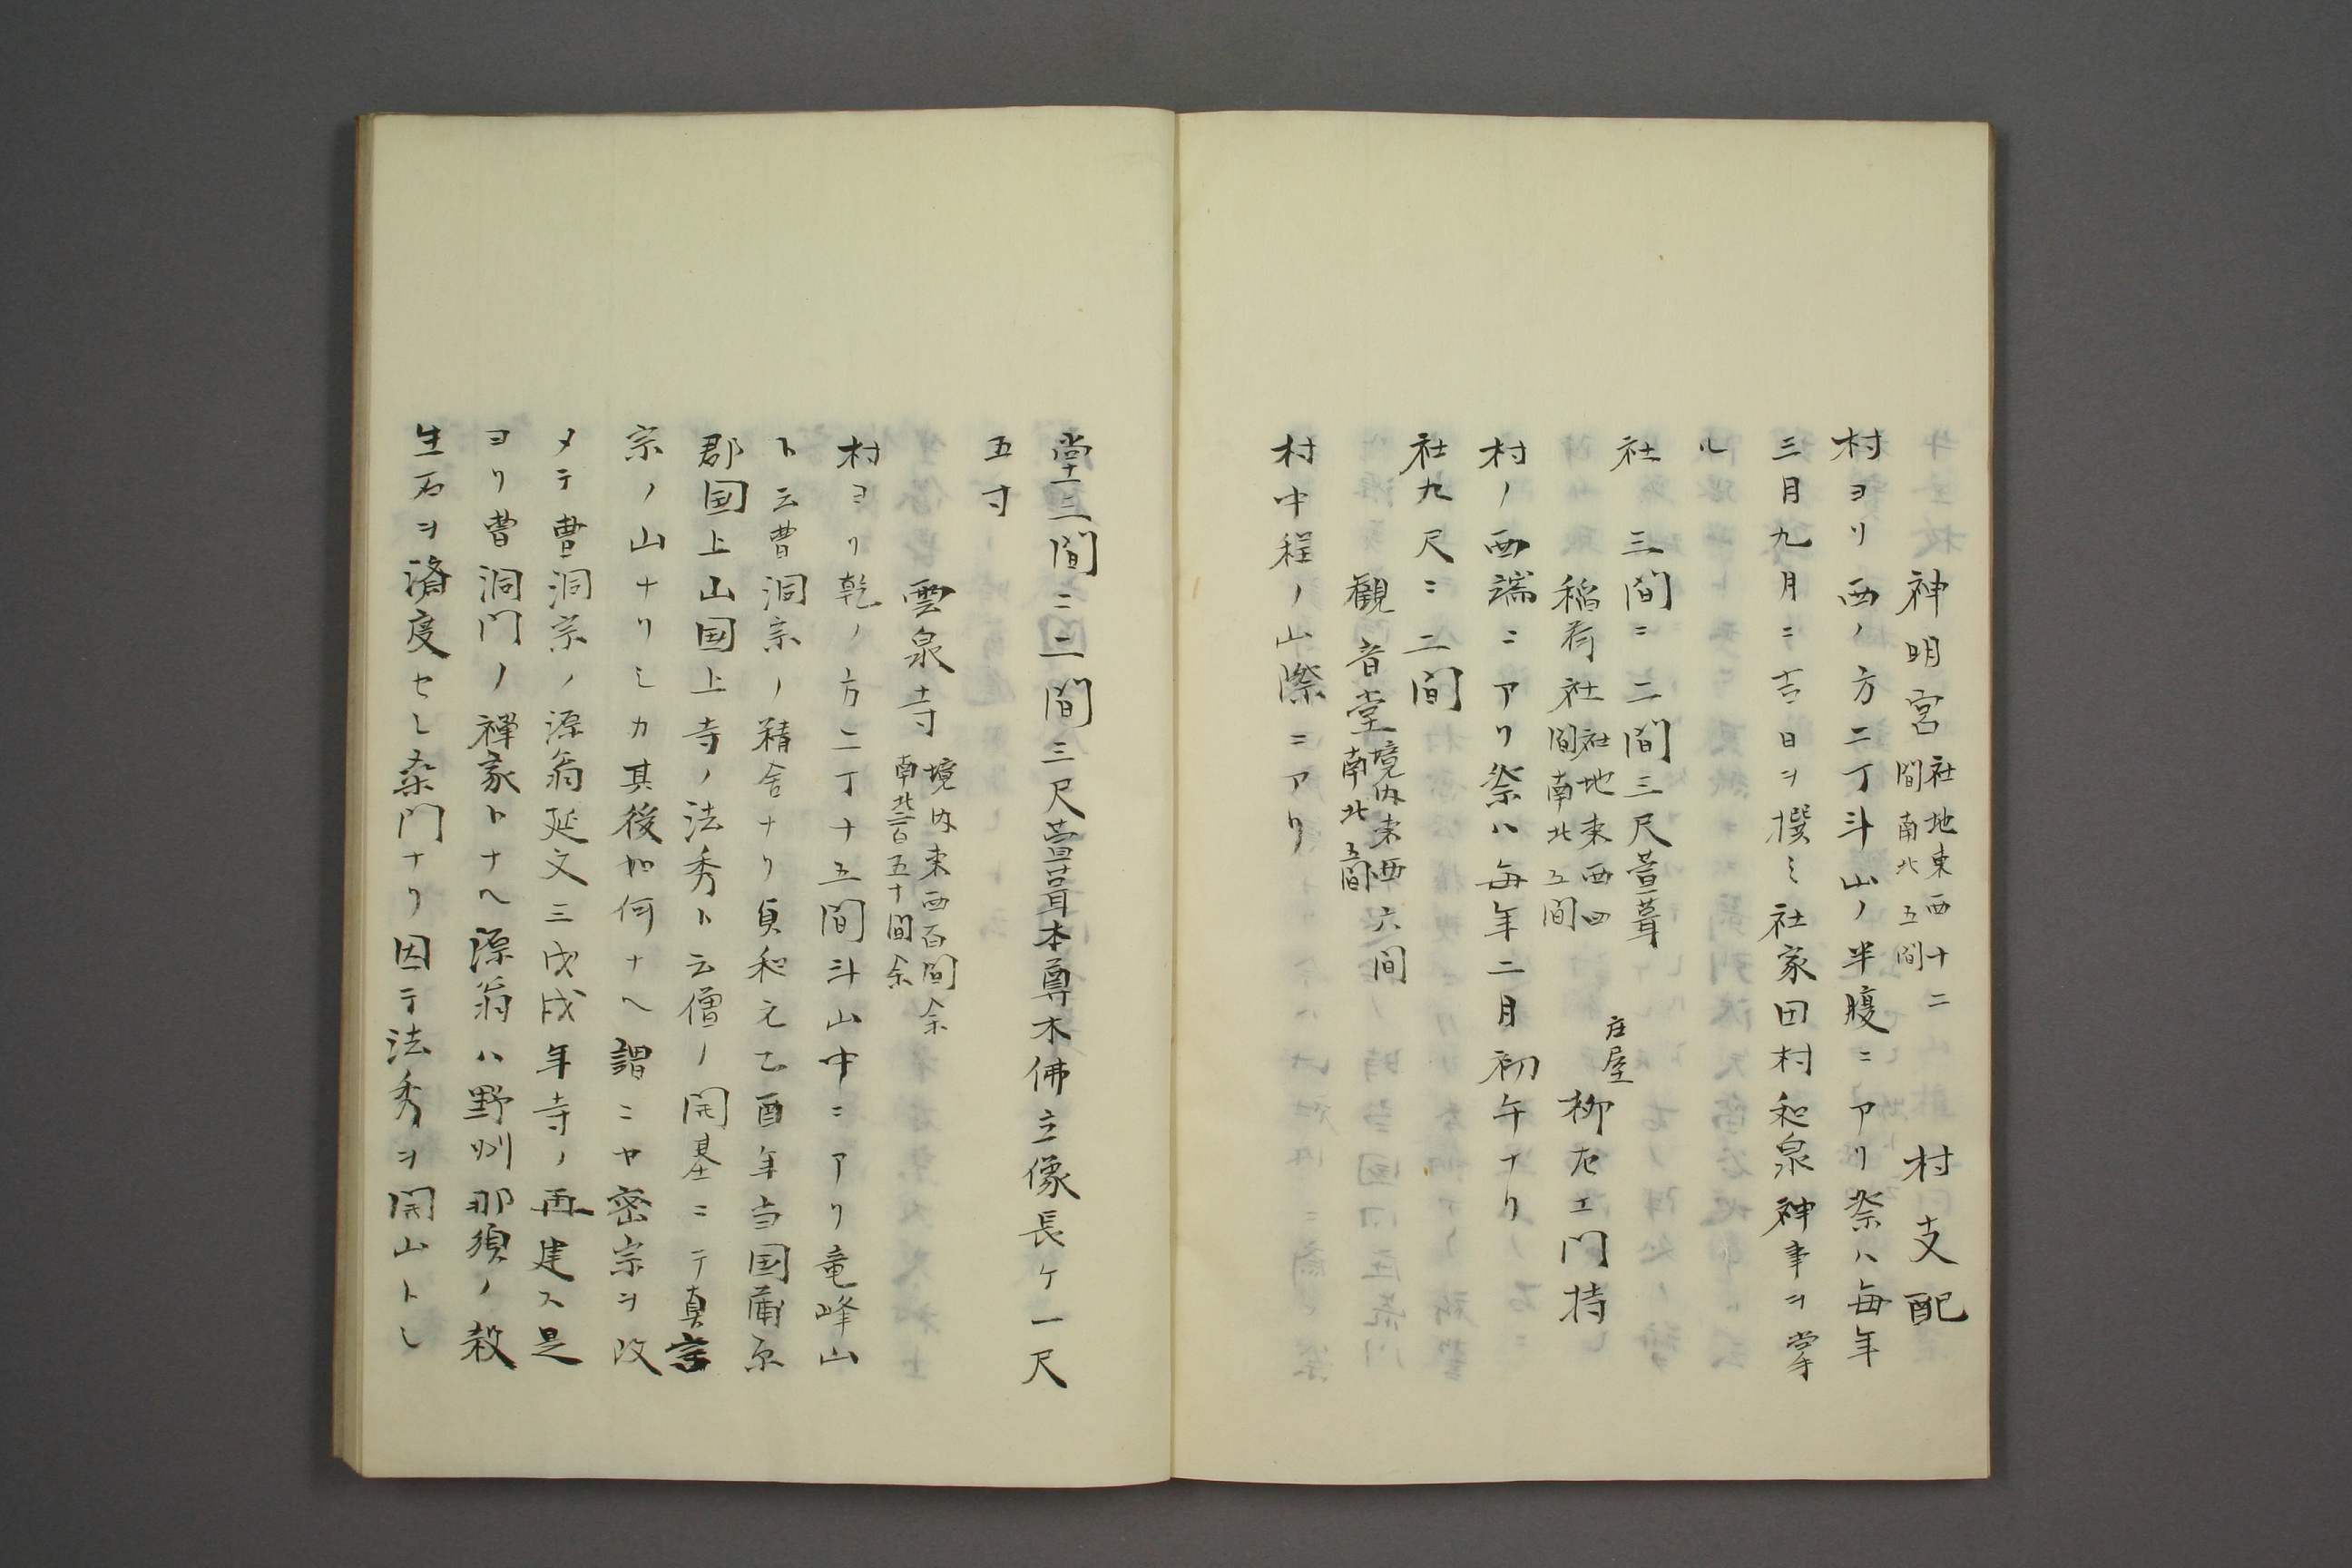 神明宮 社地東西十二間南北五間 村支配
村ヨリ西ノ方二丁斗山ノ半腹ニアリ祭ハ毎年
三月九月ニ吉日ヲ撰ミ社家田村和泉神事ヲ掌
ル
社 三間ニ二間三尺萱葺
稲荷社 社地東西四間南北五間 庄屋 柳左エ門持
村ノ西端ニアリ祭ハ毎年二月初午ナリ
社九尺ニ二間
観音堂 境内東西六間南北五間
村中程ノ山際ニアリ
堂三間ニ二間三尺萱葺本尊木佛立像長ケ一尺
五寸
雲泉寺 境内東西百間余南北百五十間余
村ヨリ乾ノ方二丁十五間斗山中ニアリ竜峰山
ト云曹洞宗ノ精舎ナリ貞和元乙酉年当国蒲原
郡国上山国上寺ノ法秀ト云僧ノ開基ニテ真言
宗ノ山ナリシカ其後如何ナヘ謂ニヤ密宗ヲ改
メテ曹洞宗ノ源翁延文三戊戌年寺ノ再建ス是
ヨリ曹洞門ノ禅家トナヘ源翁ハ野州那須ノ殺
生石ヲ済度セシ桑門ナリ因テ法秀ヲ開山トシ